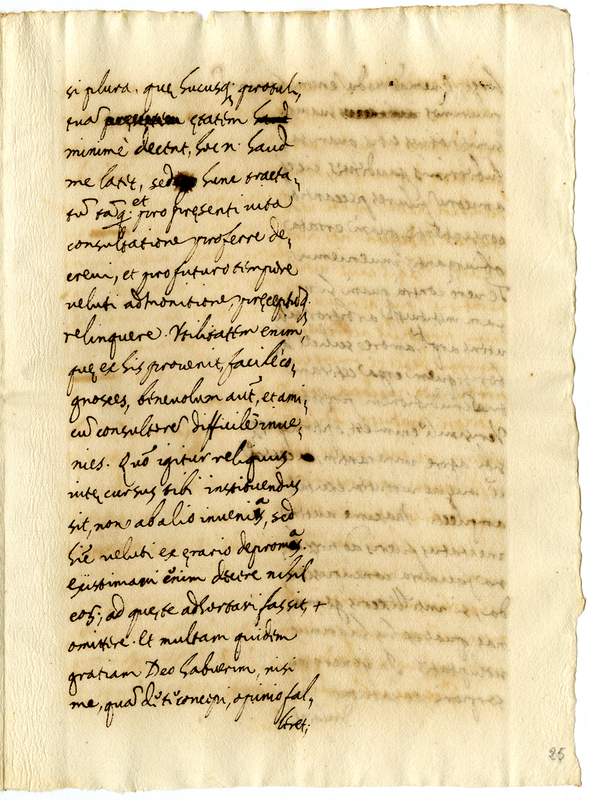 si plura, quę hucusq; protuli,
tuã ętatem
minimè decent, hoc n. haud
me latet, sed hunc tracta,
tũ tãq; et pro pręsenti vita
consultatione proferre de,
crevi, et pro futuro tempore
veluti admonitione pręceptioq.
relinquere. Utilitatem enim,
quę ex his provenit, facilè co,
gnosces, benevolum aut, et ami,
cũ consultorẽ difficilè inve,
nies. Quõ igitur reliquus
vitę cursus tibi instituendus
sit, non ab alio invenias, sed
hĩc veluti ex ęrario depromas.
existimavi enim decere nihil
eoꝝ, ad quę te adhortari fas sit, +
omittere. Et multam quidem
gratiam Deo habuerim, nisi
me, quã de te concepi, opinio fal,
leret;
25